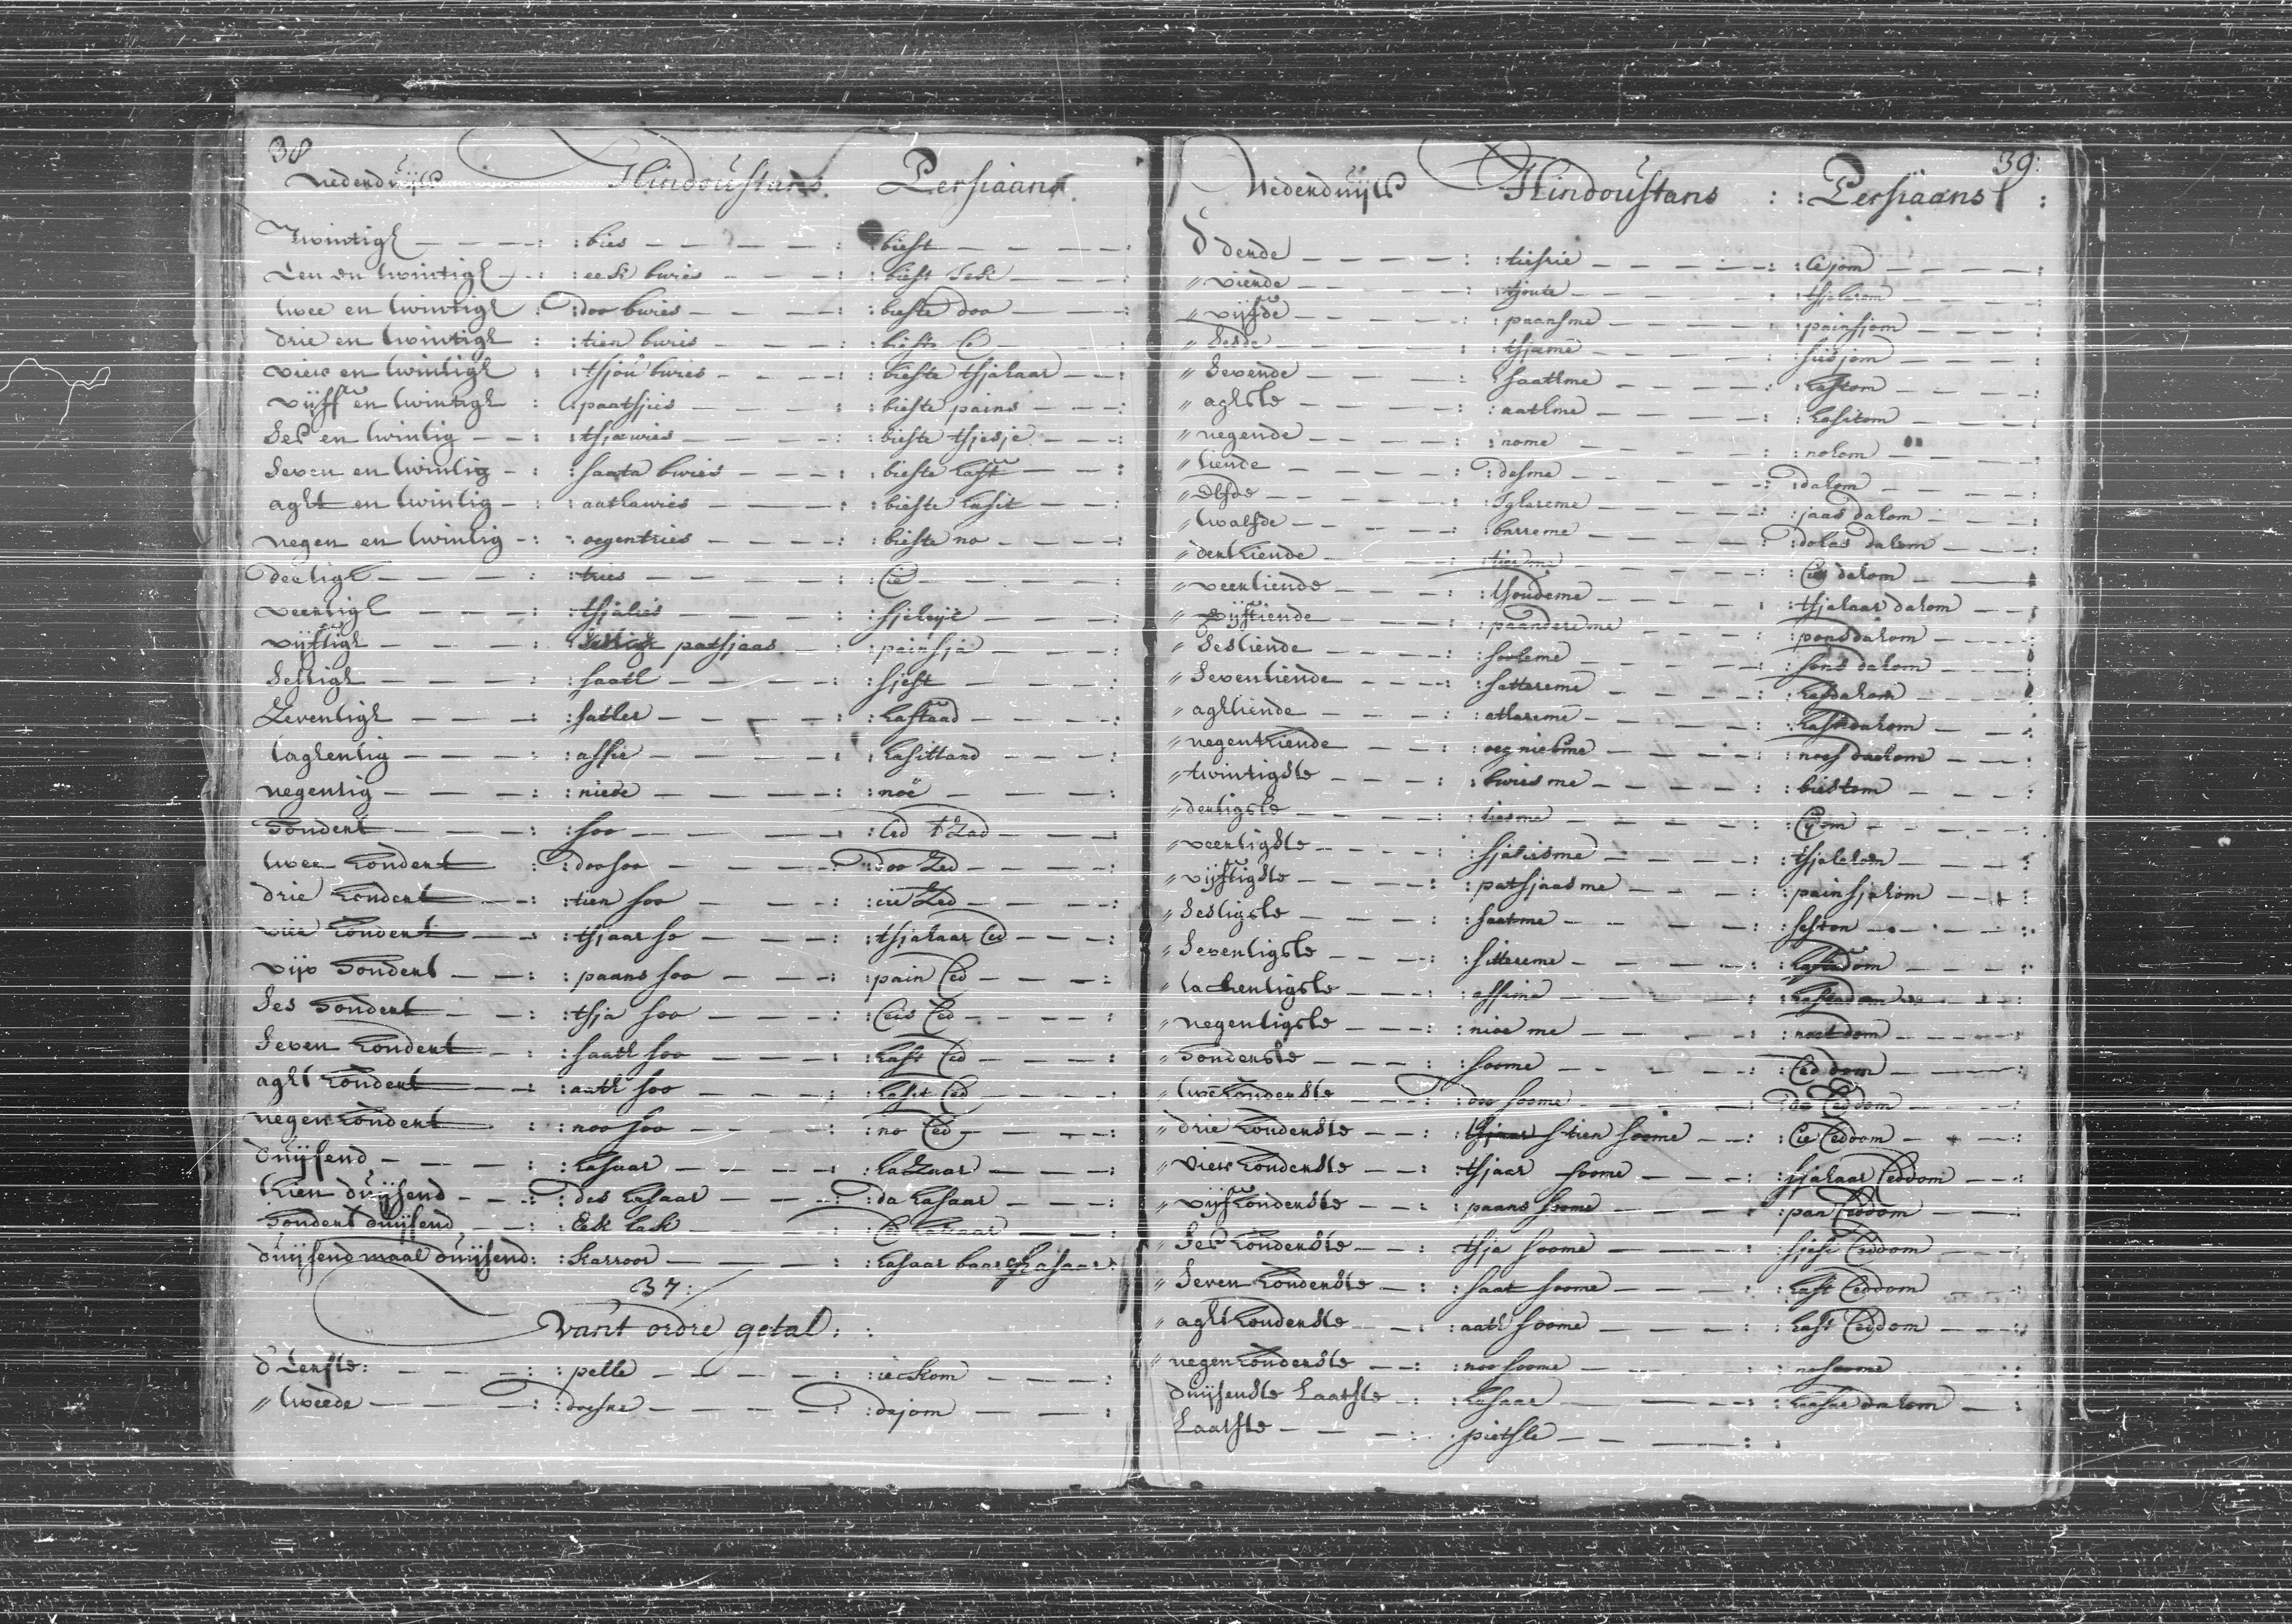 38
Nederduijts Hindoustans Persiaans
Twintigh : bies : biest
Een en twintigh : eek bwies : biest Jek
twee en twintigh : doo bwies : bieste doo
drie en twintigh : tien bwies : bieste Ce
vier en twintigh : tsjou bwies : bieste tsjahaar
vijff en twintigh : paatsjies : bieste pains
Ses en twintig : tsjawies : bieste tsjesje
Seven en twintig : saata bwies : bieste haft
aght en twintig : aathawies : bieste hasit
negen en twintig : oegentries : bieste no
deetigh : tries : Cie
veertigh : tsjalies : sjeleije
vijftigh : patsjaas : painsja
Sestigh : saath : sjest
Zeventigh : satter : haftaad
taghentig : assie : hasittaad
negentig : niewe : noe
hondert : soo : Ced Zad
twee hondert : doosoo : doo Zed
drie hondert : tien soo : cie Zed
vier hondert : tsjaar so : tsjahaar Ced
vijv hondert : paans soo : pain Ced
Ses hondert : tsja soo : Ceis Ced
Seven hondert : saath soo : haft Ced
aght hondert : aath soo : hasit Ced
negen hondert : noo soo : no Ced
duijsend : hasaar : haZaar
thien duijsend : des hasaar : da hasaar
hondert duijsend : Eek lak : Ced hasaar
duijsend maal duijsend : karroor : hasaar baar hasaar
37:
van't ordre getal :
d' Eerste : pelle : ieckom
" tweede : doesre : dojom
39:
Nederduijts Hindoustans : : Persiaans :
d' derde : tiesrie : Cejom
" vierde : tjoute : tsjaharom
" vijfde : paansme : painsjom
" Sesde : tsjame : siesjom
" Sevende : saathme : haftom
" aghste : aathme : hasitom
" negende : nome : nohom
" tiende : desme : dahom
" Elfde : Iglareme : jaas dahom
" twalfde : barreme : doas dahom
" derthiende : : Cies dahom
" veertiende : tsoudeme : tsjahaar dahom
" vijftiende : paandereme : pons dahom
" Sestiende : sooleme : sons dahom
" Seventiende : sattereme : hafdahom
" aghtiende : athareme : hasitdahom
" negenthiende : oegniesme : noes daehom
" twintigste : bwiesme : biestom
" dertigste : tiesme : Cijom
" veertigste : sjaliesme : tsjelehom
" vijftigste : patsjaasme : painsjahom
" Sestigste : saatme : seston
" Seventigste : sittereme : haftadom
" tachentigste : assime :
" negentigste : nioe me : noetdom
" honderste : soome : Ced dom
" twehonderste : doo soome : do Ceddom
" drie honderste : tien soome : Cie Ceddom
" vier honderste : tsjaar soome : sjahaar Ceddom
" vijfhonderste : paans soome : pan Ceddom
" Ses honderste : tsja soome : sjese Ceddom
" Seven honderste : saat soome : haft Ceddom
" aghthonderste : aath soome : hast Ceddom
" negenhonderste : noo soome : nosoome
duijsenste Laatste : hasaar : haasar dahom
Laatste : pietsle :